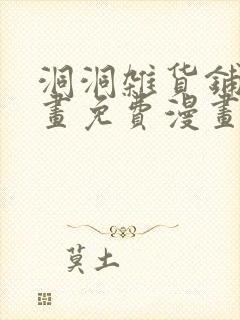 洞洞雜貨鋪
畫免費漫畫
莫土